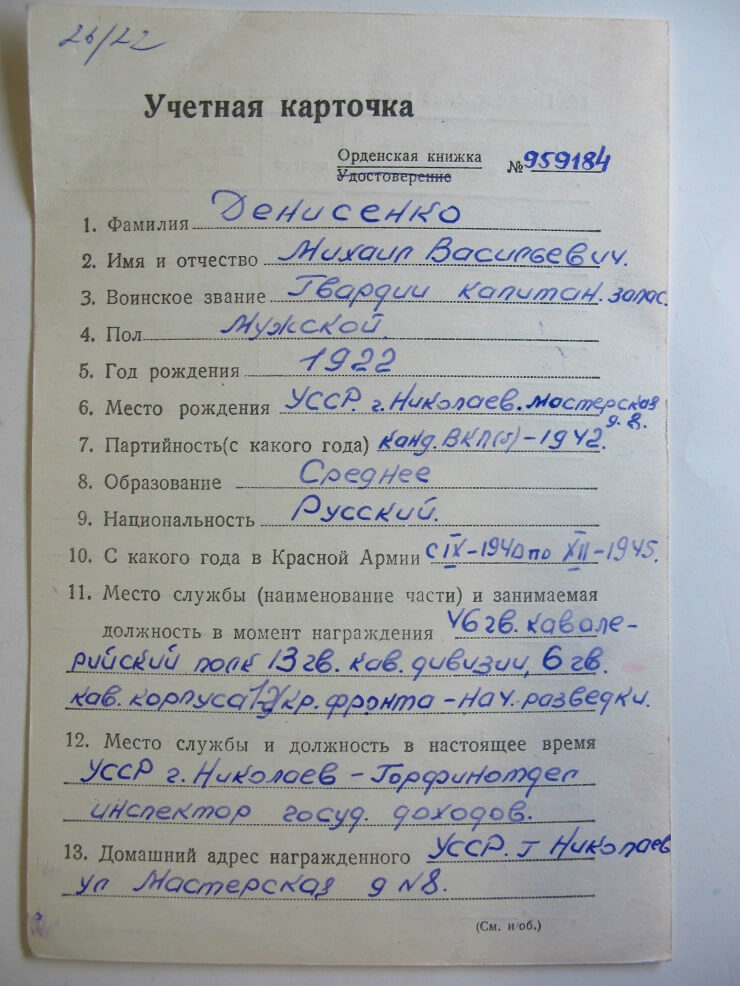 26/22
Учетная карточка
Орденская книжка
Удостоверение
№ 959184
1. Фамилия Денисенко
2. Имя и отчество Михаил Васильевич.
3. Воинское звание Гвардии капитан. запас.
4. Пол Мужской.
5. Год рождения 1922
6. Место рождения УССР. г. Николаев. Мастерская
д. 8.
7. Партийность(с какого года) канд. ВКП(б)-1942.
8. Образование Среднее
9. Национальность Русский.
10. С какого года в Красной Армии с IX-1940 по XII-1945.
11. Место службы (наименование части) и занимаемая
должность в момент награждения 46 гв. кавале-
рийский полк 13 гв. кав. дивизии, 6 гв.
кав. корпуса Укр. фронта - нач. разведки.
12. Место службы и должность в настоящее время
УССР г. Николаев - Горфинотдел
инспектор госуд. доходов.
13. Домашний адрес награжденного УССР. г Николаев
ул Мастерская д N8.
(См. н/об.)